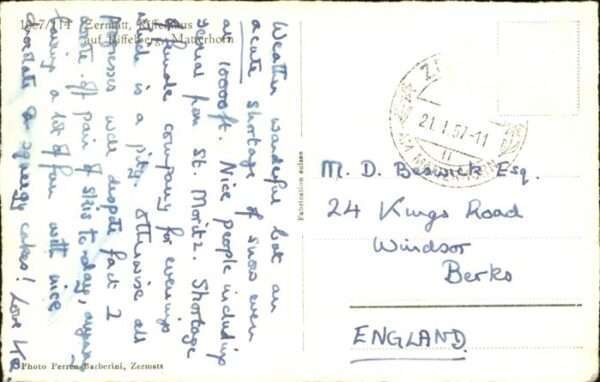 Zermatt, Riffelhaus
auf Riffelberg, Matterhorn
Weather wonderful but an
acute shortage of snow even
at 10000ft. Nice people including
several from St. Moritz. Shortage
female company for evenings
which is a pity. Otherwise all
progresses well despite fact I
pair of skis to-day,
having a lot of fun with nice
chocolate & squidgy cakes! Love
Photo Perren-Barberini, Zermatt
Fabrication suisse
21.1.57-11
M. D. Beswick Esq.
24 Kings Road
Windsor
Berks
ENGLAND